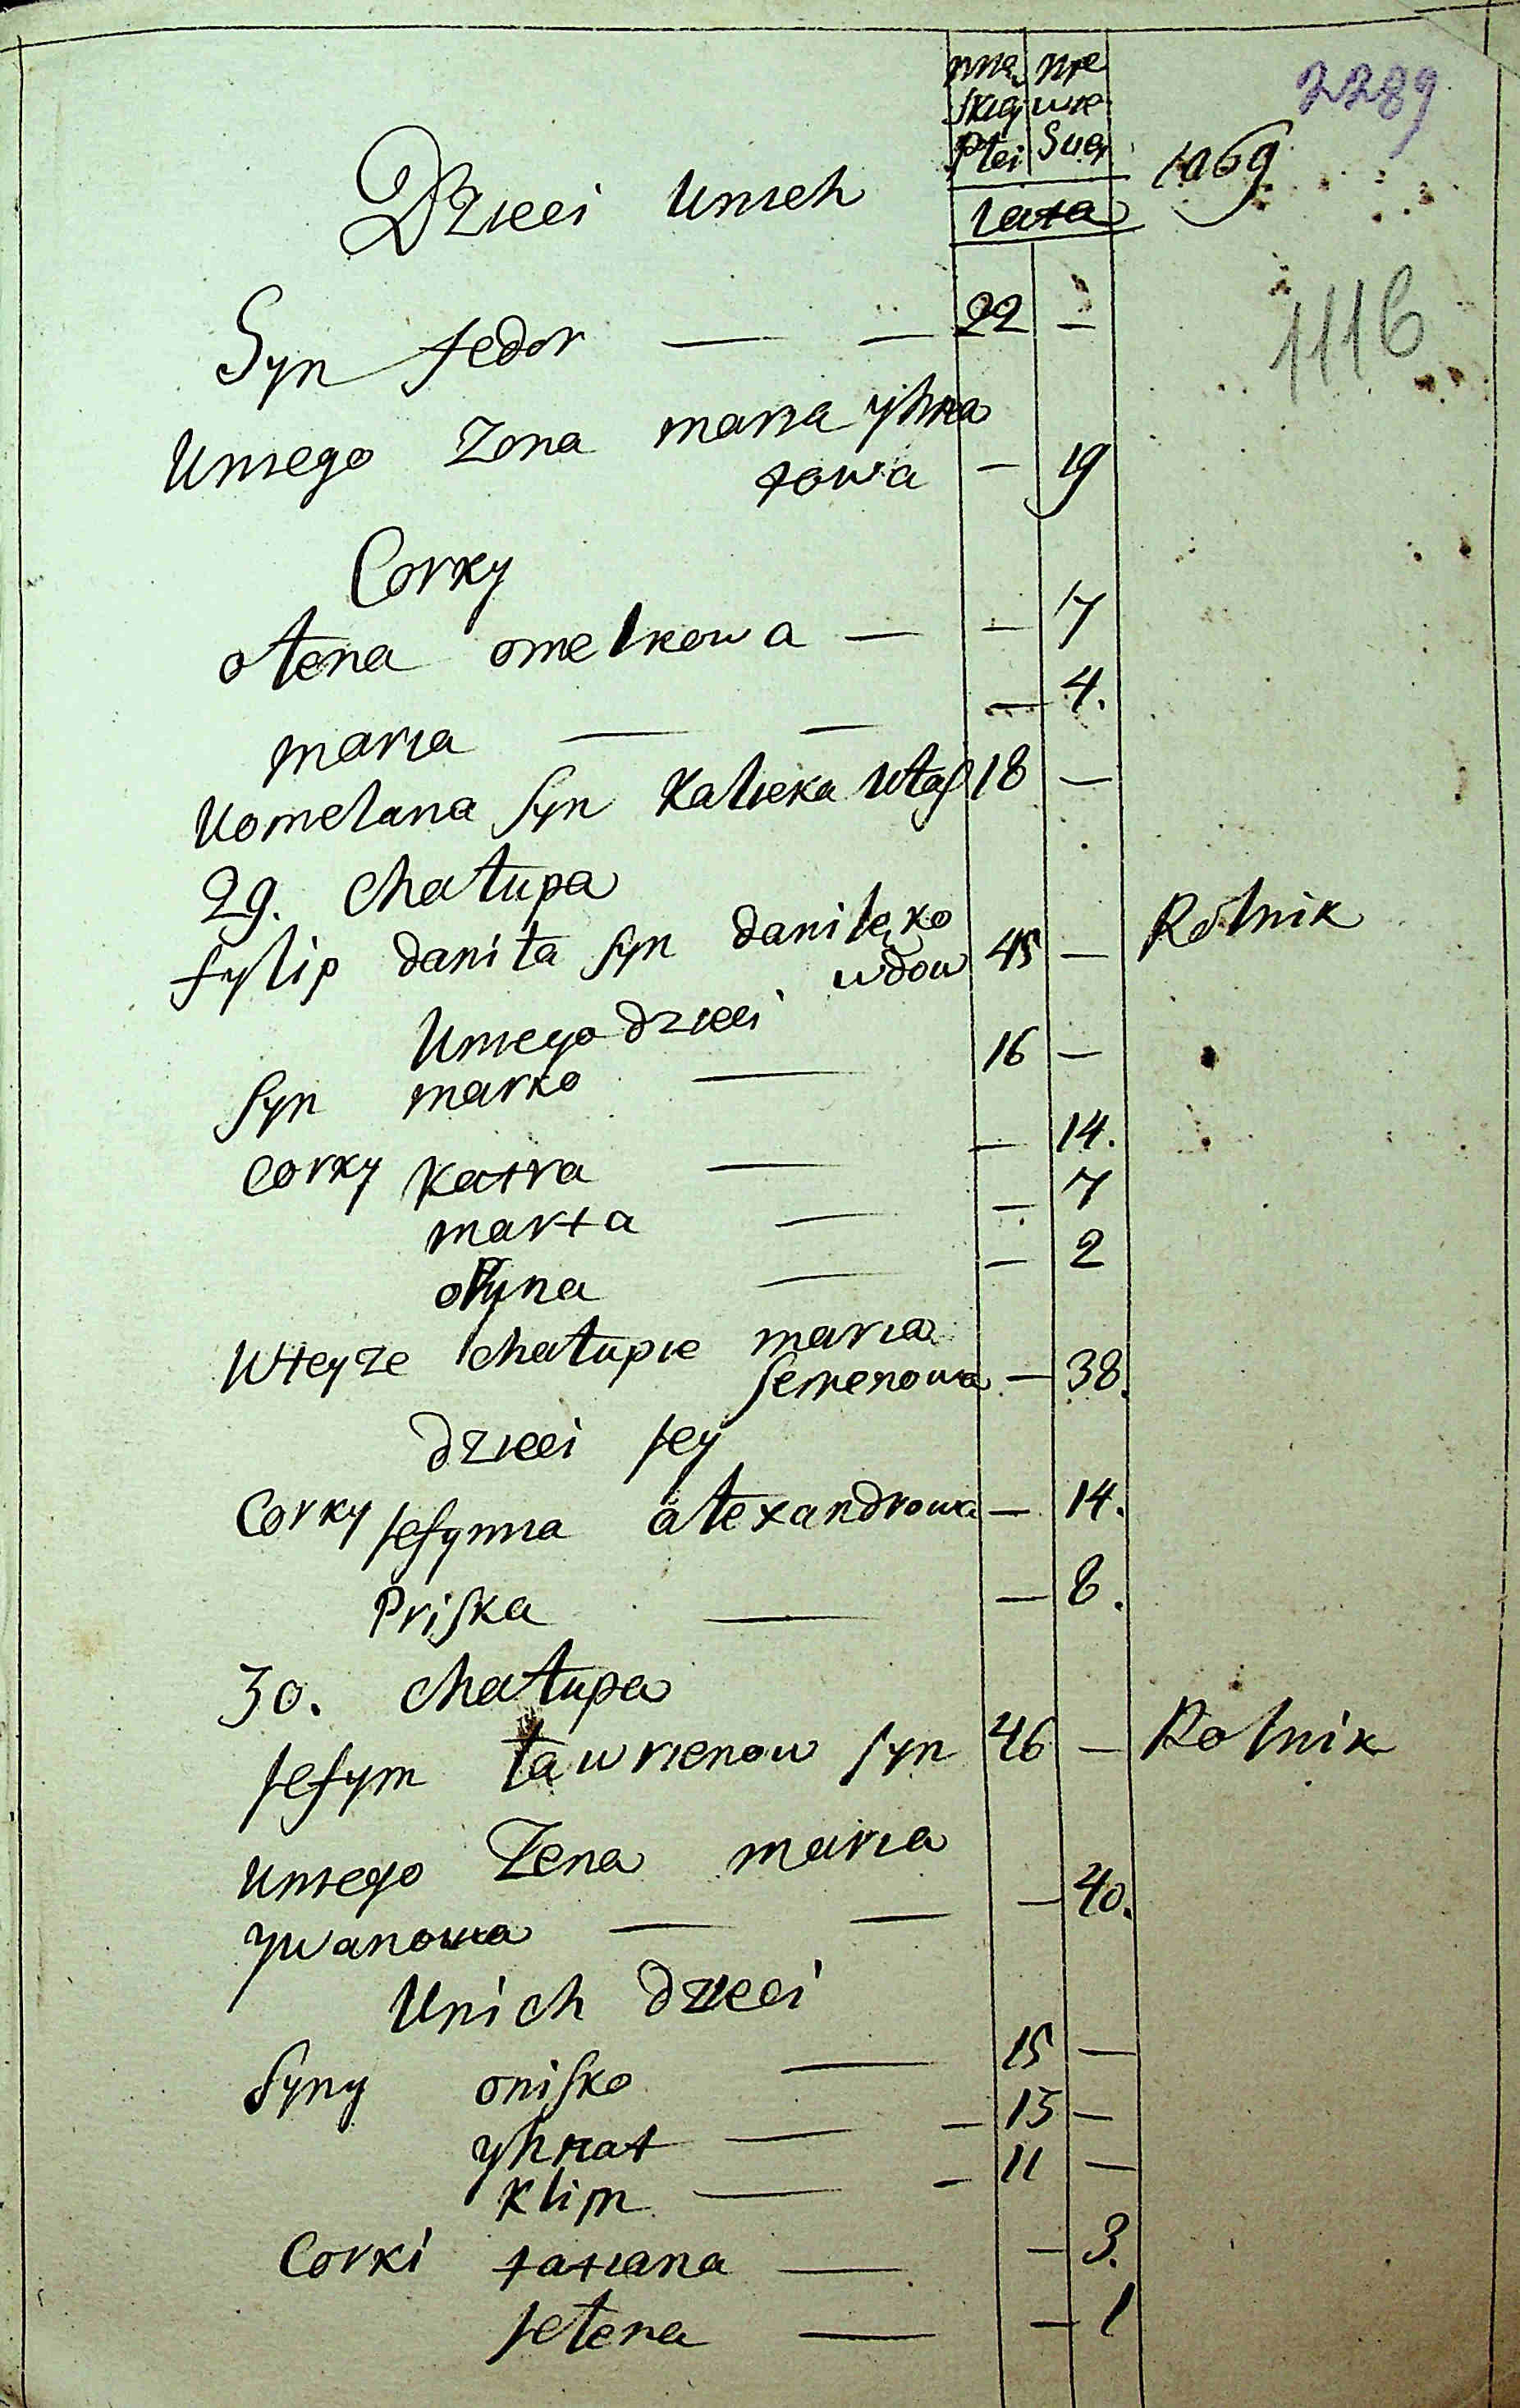 męs nie
skiej wie
płci Suej
2289
1069
1116
lata
Dzieci Unich
Syn fedor — — 22 —
Uniego Zona maria yhna
towa — 19
Corky
ołena omelkowa — — 17
maria — — — 4.
Uomelana syn Kalieka Włas 18 —
29. Chałupa
fylip daniła syn danilęko 45 — Rolnik
wdow
Uniego dzieci
Syn marko — 16 —
Corky Katra — — 14.
marta — — 7
oryna — — 2
Wteyze Chałupie maria
semenowa — 38.
dzieci jey
Corky jefymia alexandrowa — 14.
Priska — — 8.
30. Chałupa
jefym ławrienow syn 46 — Rolnik
Uniego Zena maria
ywanowa — — — 40.
Unich dzieci
Syny onisko — 15 —
yhnat — — 13 —
Klim — — 11 —
Corki tatiana — — 3.
jełena — — 1